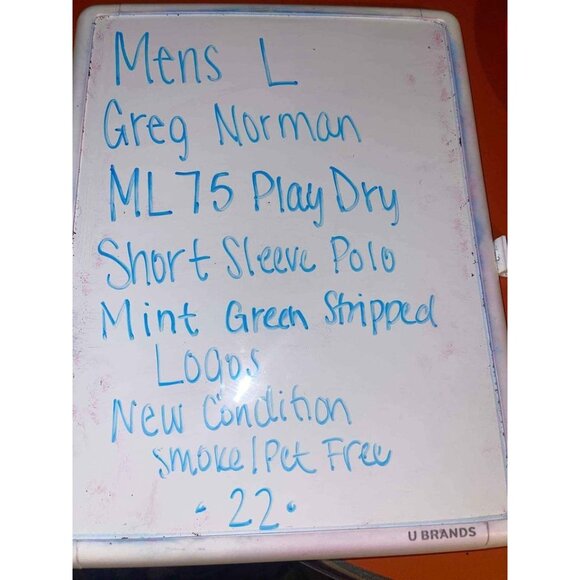 Mens L
Greg Norman
ML75 Play Dry
Short Sleeve Polo
Mint Green Stripped
Logos
New Condition
Smoke/Pet Free
• 22 •
U BRANDS